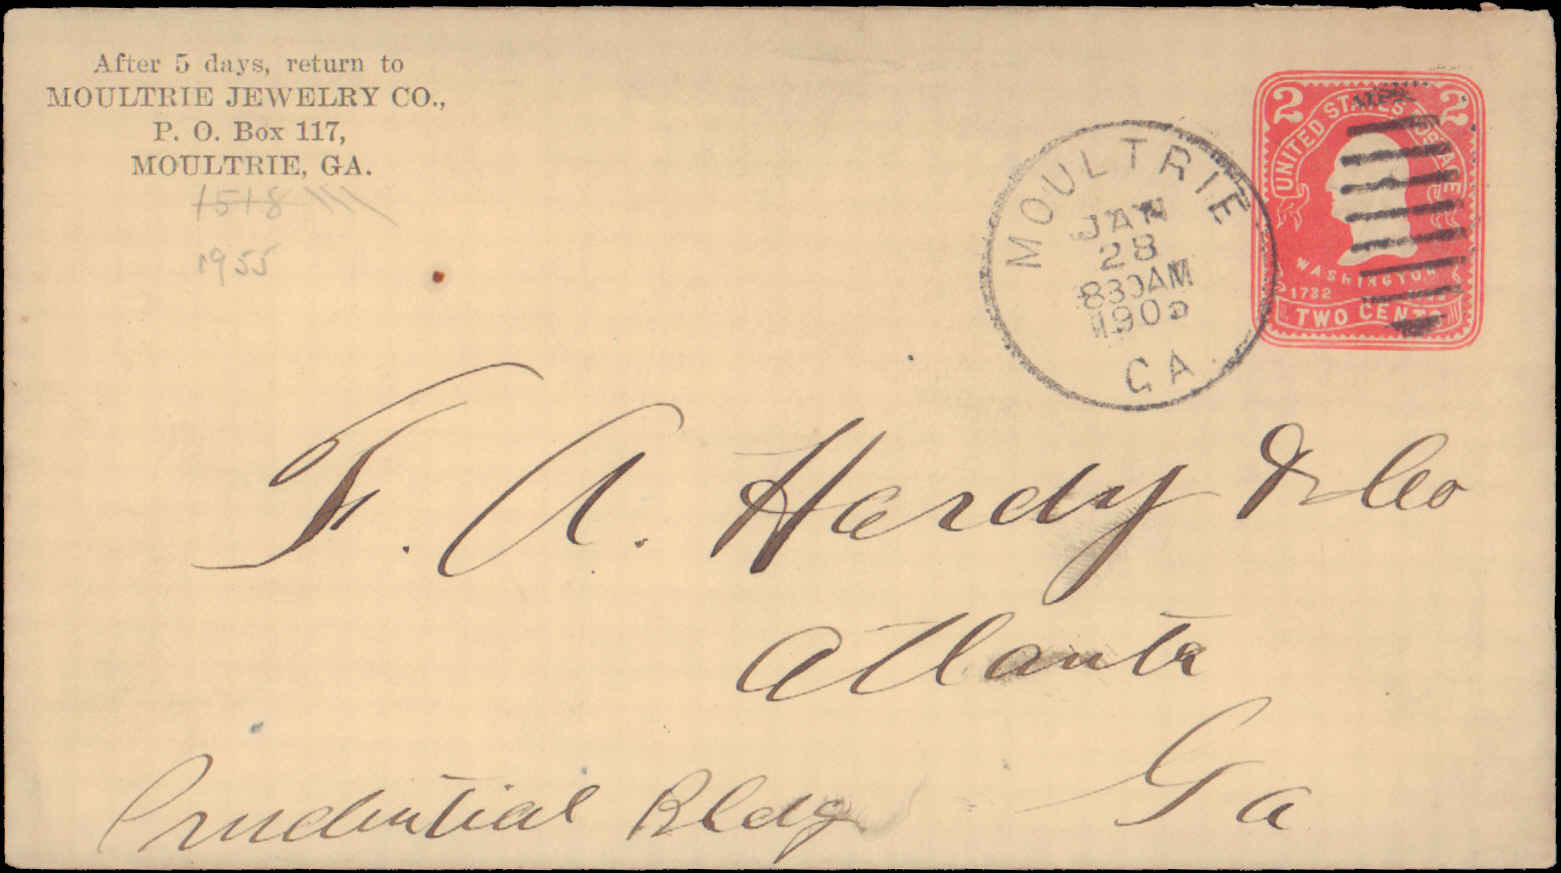 After 5 days, return to
MOULTRIE JEWELRY CO.,
P. O. Box 117,
MOULTRIE, GA.
1518
1955
MOULTRIE
JAN
28
830AM
1905
GA
2 2
UNITED STATES POSTAGE
WASHINGTON
1732
TWO CENTS
F. A. Hardy & Co
Atlanta
Ga
Prudential Bldg